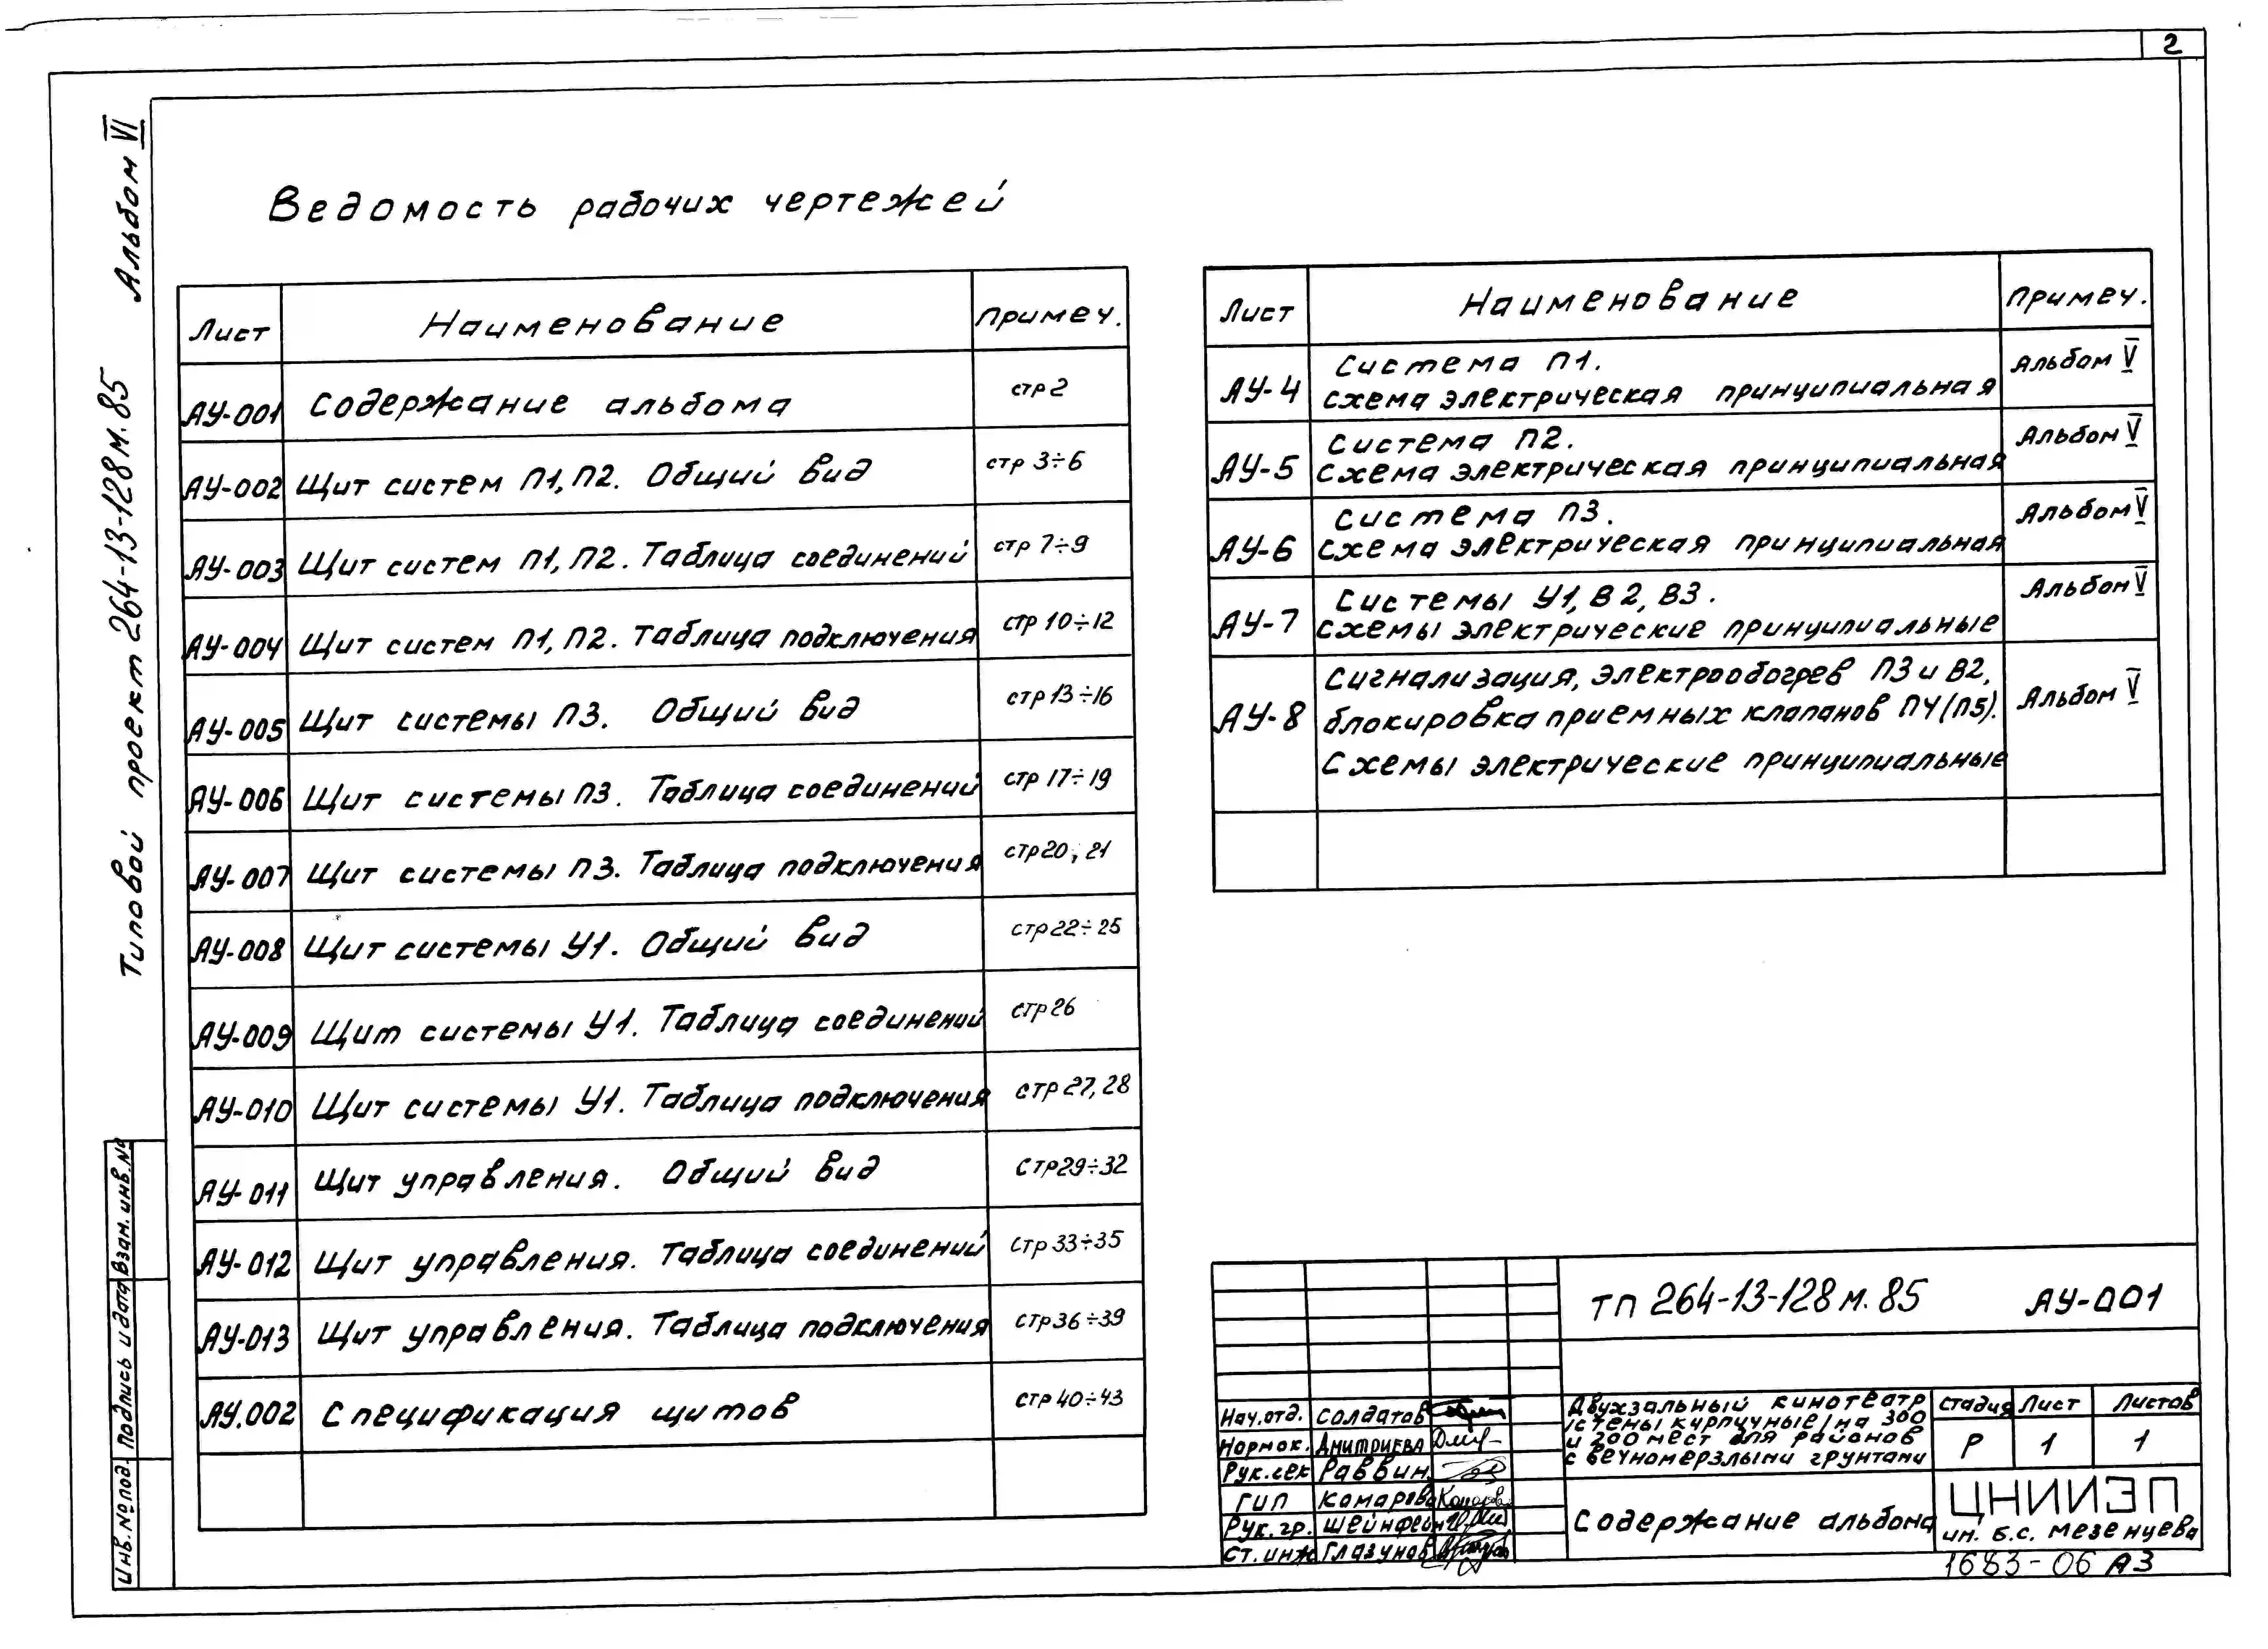 2
Альбом VI
Типовой проект 264-13-128м.85
Ведомость рабочих чертежей
Лист Наименование Примеч.
АУ-001 Содержание альбома стр 2
АУ-002 Щит систем П1, П2. Общий вид стр 3÷6
АУ-003 Щит систем П1, П2. Таблица соединений стр 7÷9
АУ-004 Щит систем П1, П2. Таблица подключения стр 10÷12
АУ-005 Щит системы П3. Общий вид стр 13÷16
АУ-006 Щит системы П3. Таблица соединений стр 17÷19
АУ-007 Щит системы П3. Таблица подключения стр 20, 21
АУ-008 Щит системы У1. Общий вид стр 22÷25
АУ-009 Щит системы У1. Таблица соединений стр 26
АУ-010 Щит системы У1. Таблица подключения стр 27, 28
АУ-011 Щит управления. Общий вид стр 29÷32
АУ-012 Щит управления. Таблица соединений стр 33÷35
АУ-013 Щит управления. Таблица подключения стр 36÷39
АУ.002 Спецификация щитов стр 40÷43
Лист Наименование Примеч.
АУ-4 Система П1. Альбом V
схема электрическая принципиальная
АУ-5 Система П2. Альбом V
Схема электрическая принципиальная
АУ-6 Система П3. Альбом V
схема электрическая принципиальная
АУ-7 Системы У1, В2, В3. Альбом V
схемы электрические принципиальные
Сигнализация, электрообогрев П3 и В2,
АУ-8 блокировка приемных клапанов П4(П5). Альбом V
Схемы электрические принципиальные
Взам. инв. №
Подпись и дата
Инв. № под.
ТП 264-13-128м.85 АУ-001
Нач.отд. Солдатов
Нормок. Дмитриева
Рук. сек Раввин
ГИП Комарова
Рук. гр. Шейнфейн
Ст. инж Глазунов
Двухзальный кинотеатр
/стены кирпичные/ на 300
и 200 мест для районов
с вечномерзлыми грунтами
Стадия Лист Листов
Р 1 1
Содержание альбома
ЦНИИЭП
им. Б.С. Мезенцева
1683-06 А3